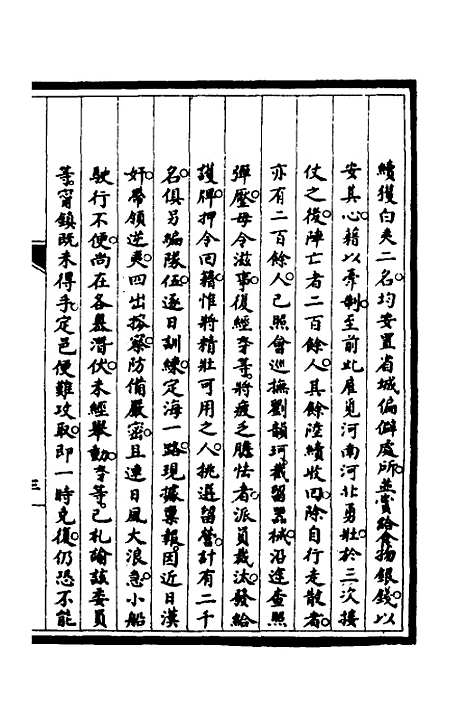 續獲白夷二名均安置省城偏僻處所並賞給食物銀錢以
安其心藉以牽制至前此雇覓河南河北勇壯於三次接
仗之後陣亡者二百餘人其餘陸續收回除自行走散者
亦有二百餘人已照會巡撫劉韻珂截留器械沿途查照
彈壓毋令滋事復經李等將疲乏膽怯者派員裁汰發給
護牌押令回籍惟將精壯可用之人挑選留營計有二千
名俱另編隊伍逐日訓練定海一路現據稟報因近日漢
奸帶領逆夷四出搜察防備嚴密且連日風大浪急小船
駛行不便尚在各嶴潛伏未經舉動李等已札諭該委員
等甯鎮既未得手定邑便難攻取即一時克復仍恐不能
三